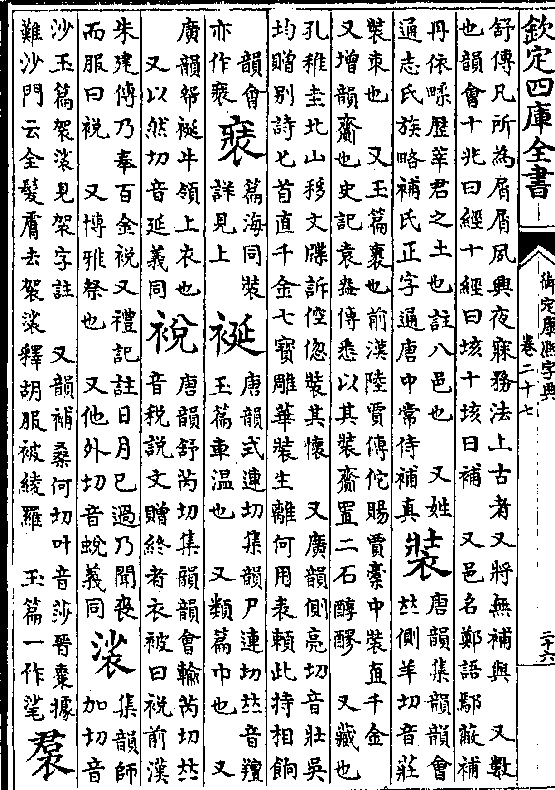 欽定四庫全書
御定康熙字典
卷二十七
二十六
舒傳凡所為屑屑夙興夜寐務法上古者又將無補與 又數
也韻會十兆曰經十經曰垓十垓曰補 又邑名鄭語鄢蔽補
丹依㽥歷莘君之土也註八邑也 又姓
通志氏族略補氏正字通唐中常侍補真
裝
唐韻集韻韻會
𠀤側羊切音莊
裝束也 又玉篇裹也前漢陸賈傳佗賜賈橐中裝直千金
又增韻齎也史記袁盎傳悉以其裝齎置二石醇醪 又藏也
孔稚圭北山移文牒訴倥傯裝其懷 又廣韻側亮切音壯吳
均贈别詩七首直千金七寶雕華裝生離何用表賴此持相餉
韻會
亦作
篇海同裝
詳見上
䘰
唐韻式連切集韻尸連切𠀤音羶
玉篇車温也 又類篇巾也 又
廣韻䘰牛領上衣也
又以然切音延義同
裞
唐韻舒芮切集韻韻會輸芮切𠀤
音稅說文贈終者衣被曰裞前漢
朱建傳乃奉百金裞又禮記註日月已過乃聞喪
而服曰裞 又博雅祭也 又他外切音蛻義同
裟
集韻師
加切音
沙玉篇袈裟見袈字註 又韻補桑何切叶音莎晉棗據
難沙門云全髮膚去袈裟釋胡服被綾羅 玉篇一作㲚
裠